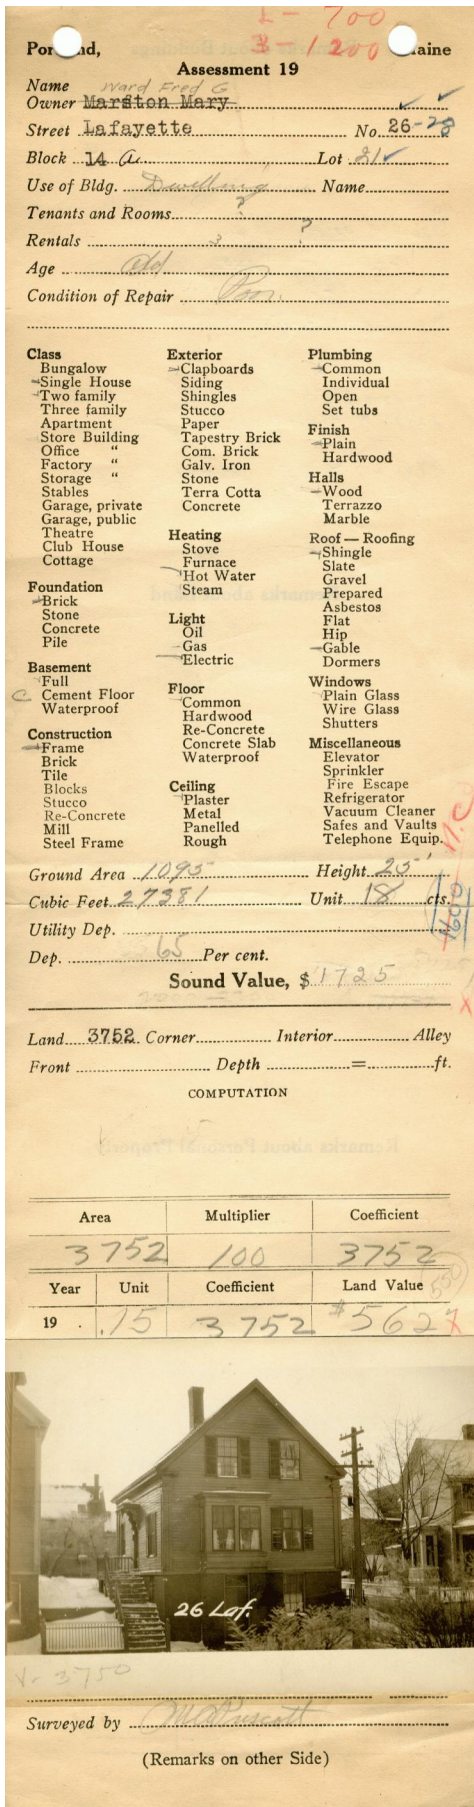 L - 700
B - 1200
Portland, Maine
Assessment 19
Name Ward Fred G
Owner Marston Mary
Street Lafayette No. 26-28
Block 14 a Lot 21
Use of Bldg. Dwelling Name
Tenants and Rooms ?
Rentals 3 ?
Age Old
Condition of Repair Poor
Class
Bungalow
Single House
Two family
Three family
Apartment
Store Building
Office "
Factory "
Storage "
Stables
Garage, private
Garage, public
Theatre
Club House
Cottage
Foundation
Brick
Stone
Concrete
Pile
Basement
Full
C Cement Floor
Waterproof
Construction
Frame
Brick
Tile
Blocks
Stucco
Re-Concrete
Mill
Steel Frame
Exterior
Clapboards
Siding
Shingles
Stucco
Paper
Tapestry Brick
Com. Brick
Galv. Iron
Stone
Terra Cotta
Concrete
Heating
Stove
Furnace
Hot Water
Steam
Light
Oil
Gas
Electric
Floor
Common
Hardwood
Re-Concrete
Concrete Slab
Waterproof
Ceiling
Plaster
Metal
Panelled
Rough
Plumbing
Common
Individual
Open
Set tubs
Finish
Plain
Hardwood
Halls
Wood
Terrazzo
Marble
Roof — Roofing
Shingle
Slate
Gravel
Prepared
Asbestos
Flat
Hip
Gable
Dormers
Windows
Plain Glass
Wire Glass
Shutters
Miscellaneous
Elevator
Sprinkler
Fire Escape
Refrigerator
Vacuum Cleaner
Safes and Vaults
Telephone Equip.
N.C
Ground Area 1095 Height 25'
Cubic Feet 27381 Unit 18 cts.
1600
Utility Dep.
Dep. 65 Per cent.
Sound Value, $ 1725
x
Land 3752 Corner Interior Alley
Front Depth = ft.
COMPUTATION
Area Multiplier Coefficient
3752 100 3752
550
Year Unit Coefficient Land Value
19 . .15 3752 $562 x
26 Laf.
V- 3750
Surveyed by M Prescott
(Remarks on other Side)